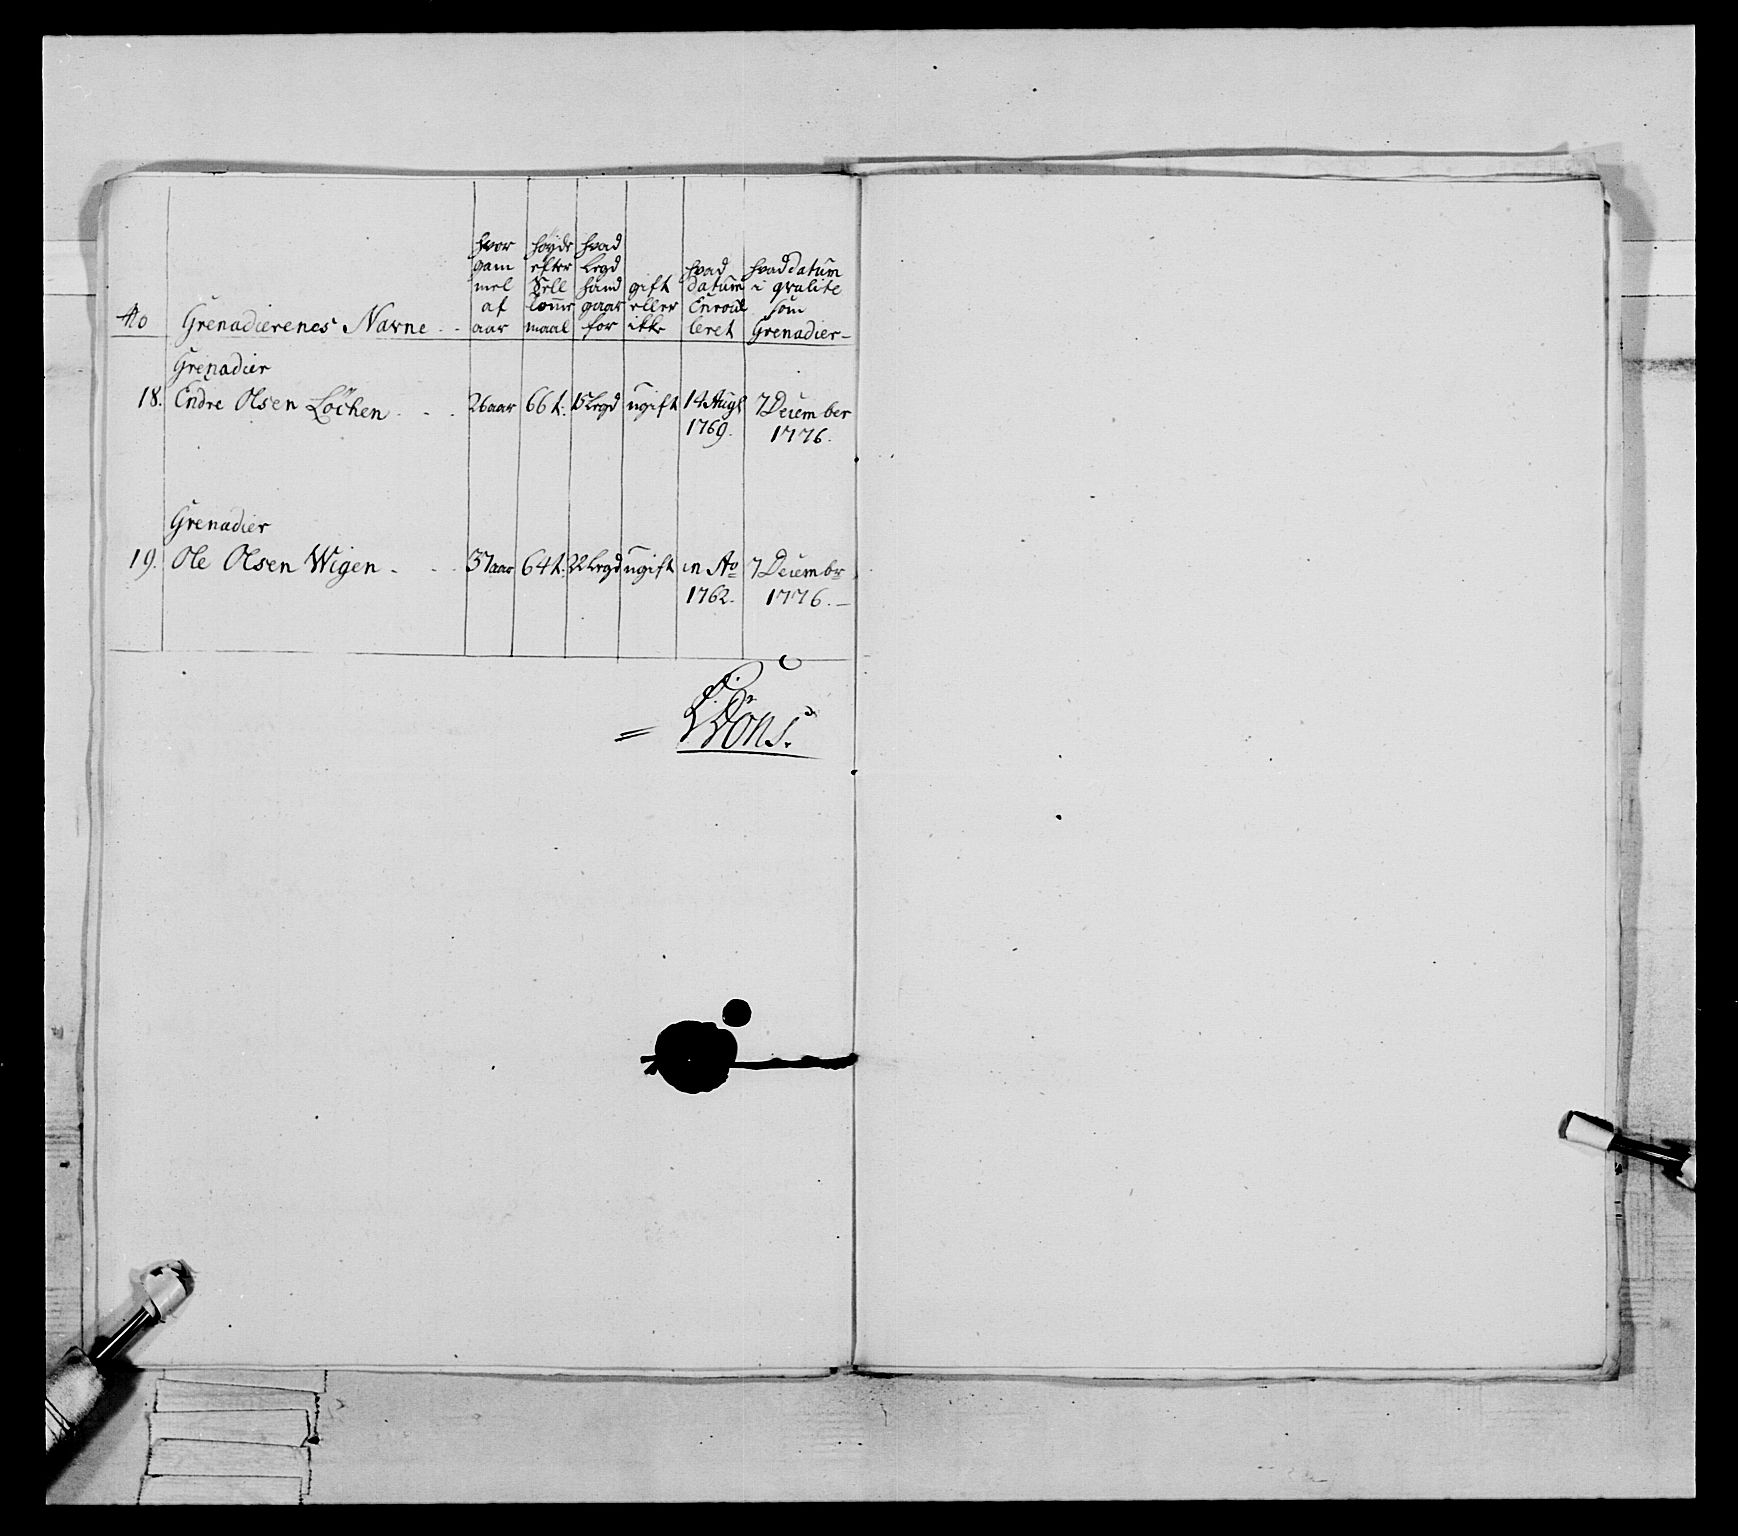 No Grenadierenes Navne - - hvor gam mel af aar høyde efter Sell maal hvad Legd hand gaar for gift eller ikke hvad datum Enroul leret hvad datum i qvalite som Grenadier -
Grenadier
18. Endre Olsen Løchen - - - 26 aar 66 t: 15 Legd ugift 14 Augt 1769. 7 December 1776.
Grenadier
19. Ole Olsen Wigen - - - 37 aar 64 t: 22 Legd ugift in Ao 1762. 7 Decembr 1776. -